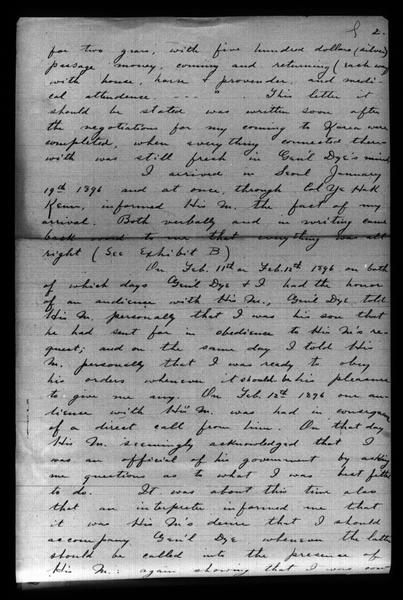 2.
for two years, with five hundred dollars (silver)
passage money, coming and returning (each way)
with house, horse & provender, and medi-
cal attendence - - - - ". This letter it
should be stated was written soon after
the negotiations for my coming to Korea were
completed, when everything connected there-
with was still fresh in Gen'l Dye's mind.
I arrived in Seoul January
19th 1896 and at once, through Col Ye Hak
Keun, informed His M. the fact of my
arrival. Both verbally and in writing came
back word to me that everything was all
right (See Exhibit B)
On Feb. 11th or Feb. 12th 1896 on both
of which days Gen'l Dye & I had the honor
of an audience with His M., Gen'l Dye told
His M. personally that I was his son that
he had sent for in obedience to His M's re-
quest; and on the same day I told His
M. personally that I was ready to obey
his orders whenever it should be his pleasure
to give me any. On Feb. 12th 1896 our au-
dience with His M. was had in consequence
of a direct call from him. On that day
His M. seemingly acknowledged that I
was an official of his government by asking
me questions as to what I was best fitted
to do. It was about this time also
that an interpreter informed me that
it was His M's desire that I should
accompany Gen'l Dye whenever the latter
should be called into the presence of
His M.: again showing that I was con-